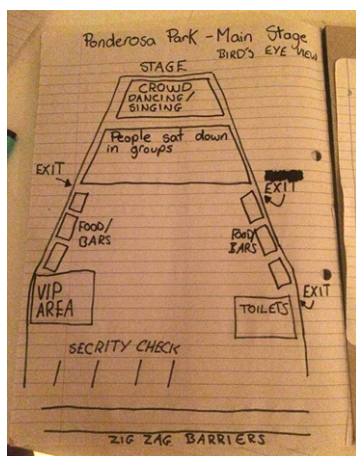 Ponderosa Park - Main Stage
BIRD'S EYE VIEW
STAGE
CROWD
DANCING/
SINGING
People sat down
in groups
EXIT
EXIT
FOOD/
BARS
FOOD/
BARS
VIP
AREA
EXIT
TOILETS
SECRITY CHECK
ZIG ZAG BARRIERS